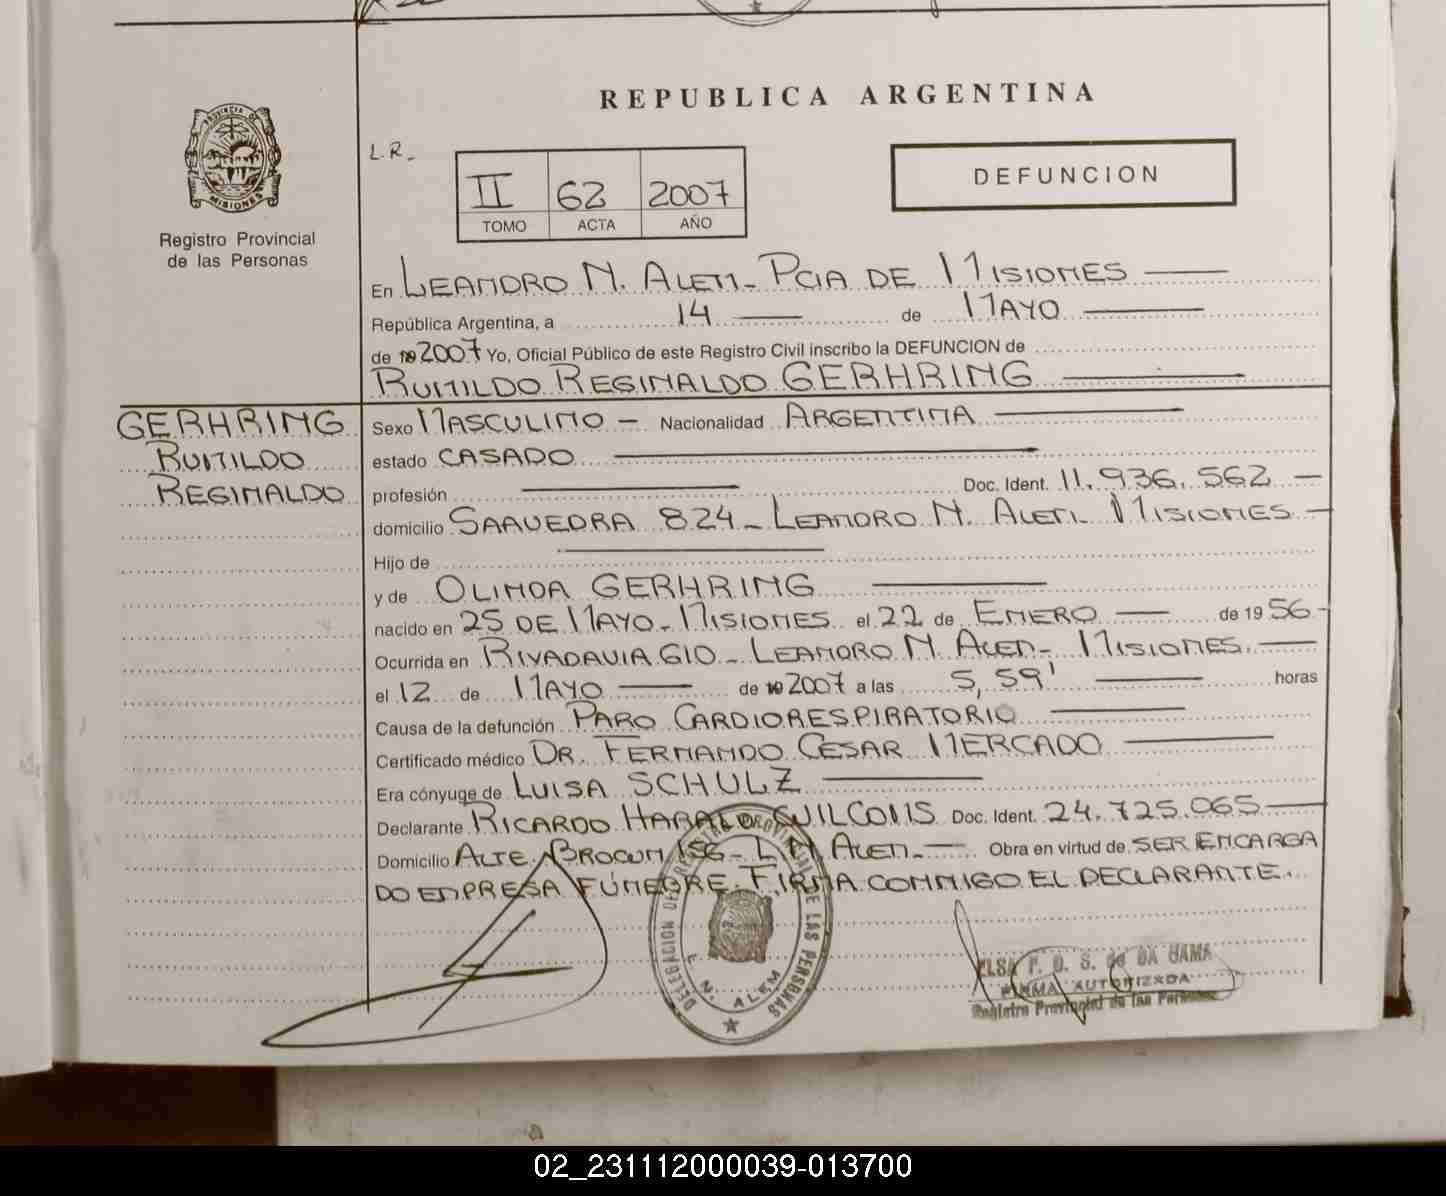 REPUBLICA ARGENTINA
PROVINCIA DE
MISIONES
Registro Provincial
de las Personas
L.R.
II 62 2007
TOMO ACTA AÑO
DEFUNCION
En LEANDRO N. ALEM - PCIA DE MISIONES
República Argentina, a 14 de MAYO
de 19 2007 Yo, Oficial Público de este Registro Civil inscribo la DEFUNCION de
RUMILDO REGINALDO GERHRING
GERHRING
RUMILDO
REGINALDO
Sexo MASCULINO - Nacionalidad ARGENTINA
estado CASADO
profesión Doc. Ident. 11.936.562 -
domicilio SAAVEDRA 824 - LEANDRO N. ALEM. MISIONES -
Hijo de
y de OLINDA GERHRING
nacido en 25 DE MAYO - MISIONES el 22 de ENERO de 19 56 -
Ocurrida en RIVADAVIA 610 - LEANDRO N. ALEM - MISIONES.
el 12 de MAYO de 19 2007 a las 5,59' horas
Causa de la defunción PARO CARDIORESPIRATORIO
Certificado médico DR. FERNANDO CESAR MERCADO
Era cónyuge de LUISA SCHULZ
Declarante RICARDO HARALD Doc. Ident. 24.725.065
Domicilio ALTE. BROWN L N ALEM. Obra en virtud de SER ENCARGA
DO EMPRESA FÚNEBRE. FIRMA CONMIGO EL DECLARANTE.
DELEGACION DEL REGISTRO PROVINCIAL DE LAS PERSONAS
L. N. ALEM
ELSA F. D. S. de DA GAMA
FIRMA AUTORIZADA
Registro Provincial de las Personas
02_231112000039-013700